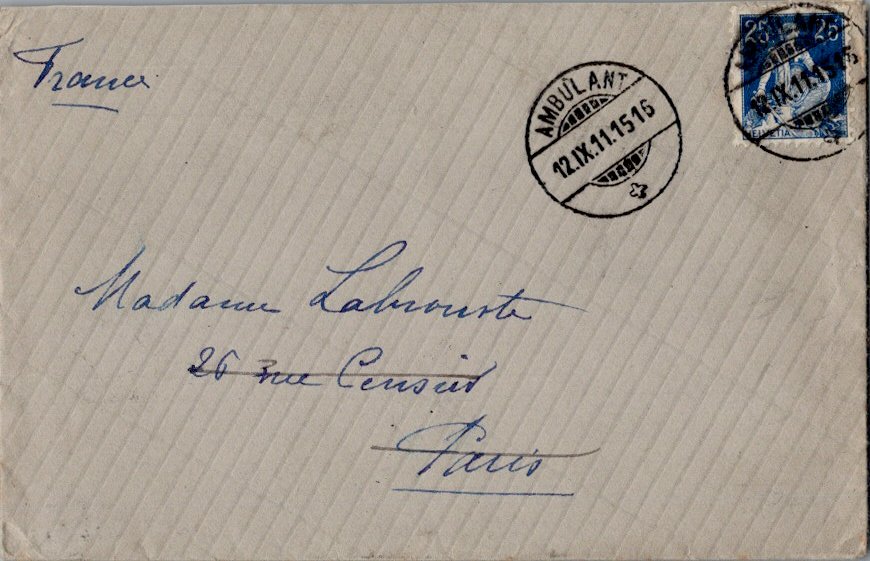 France
AMBULANT
12.IX.11.1516
25 25
12.IX.11.1516
HELVETIA
Madame Labrouste
26 rue Censier
Paris